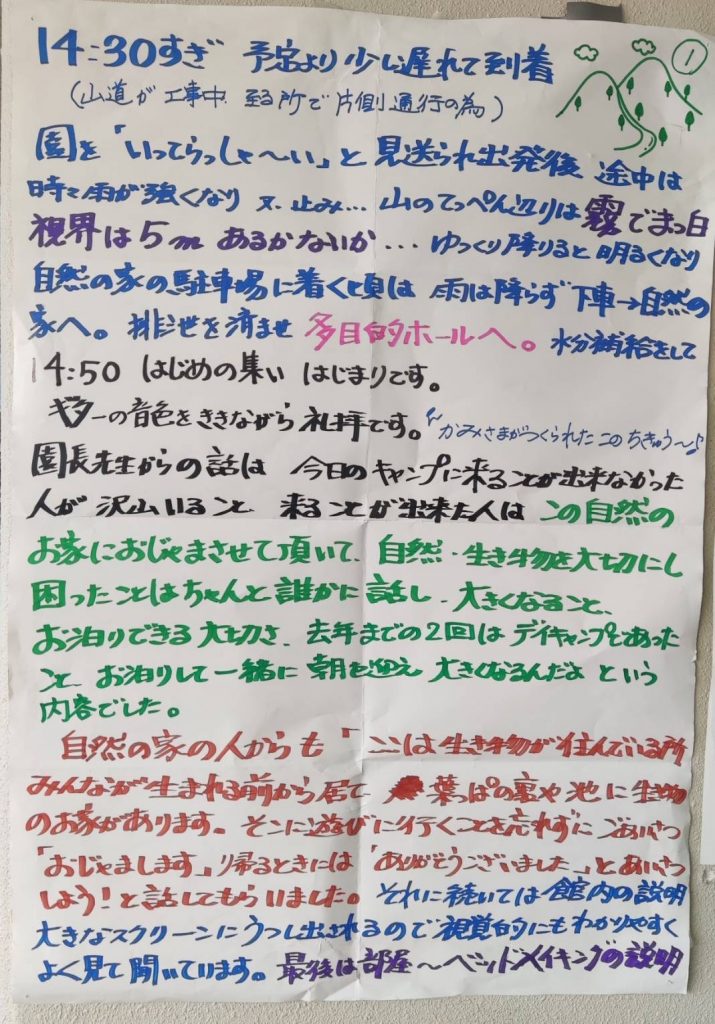 ①
14:30すぎ 予定より少し遅れて到着
(山道が工事中 至る所で片側通行の為)
園を「いってらっしゃ〜い」と見送られ出発後 途中は
時々雨が強くなり 又 止み… 山のてっぺん辺りは霧でまっ白
視界は5m あるかないか… ゆっくり降りると 明るくなり
自然の家の駐車場に着く頃は 雨は降らず 下車→自然の
家へ。 排泄を済ませ 多目的ホールへ。 水分補給をして
14:50 はじめの集い はじまりです。
ギターの音色をききながら 礼拝です。 かみさまがつくられた このちきゅう〜♪
園長先生からの話は 今日のキャンプに来ることが出来なかった
人が 沢山いること 来ることが出来た人は この自然の
お家におじゃまさせて頂いて、自然・生き物を大切にし
困ったことはちゃんと誰かに話し、大きくなること、
お泊りできる大切さ、去年までの2回は デイキャンプであった
こと、お泊りして一緒に 朝を迎え 大きくなるんだよ という
内容でした。
自然の家の人からも「ここは生き物が住んでいる所
みんなが生まれる前から居て 葉っぱの裏や池に生物
のお家があります。そこに遊びに行くことを忘れずに ごあいさつ
「おじゃまします」帰るときには「ありがとうございました」とあいさつ
しよう!と話してもらいました。それに続いては 館内の説明
大きなスクリーンにうつし出されるので 視覚的にもわかりやすく
よく見て聞いています。最後は部屋〜ベッドメイキングの説明